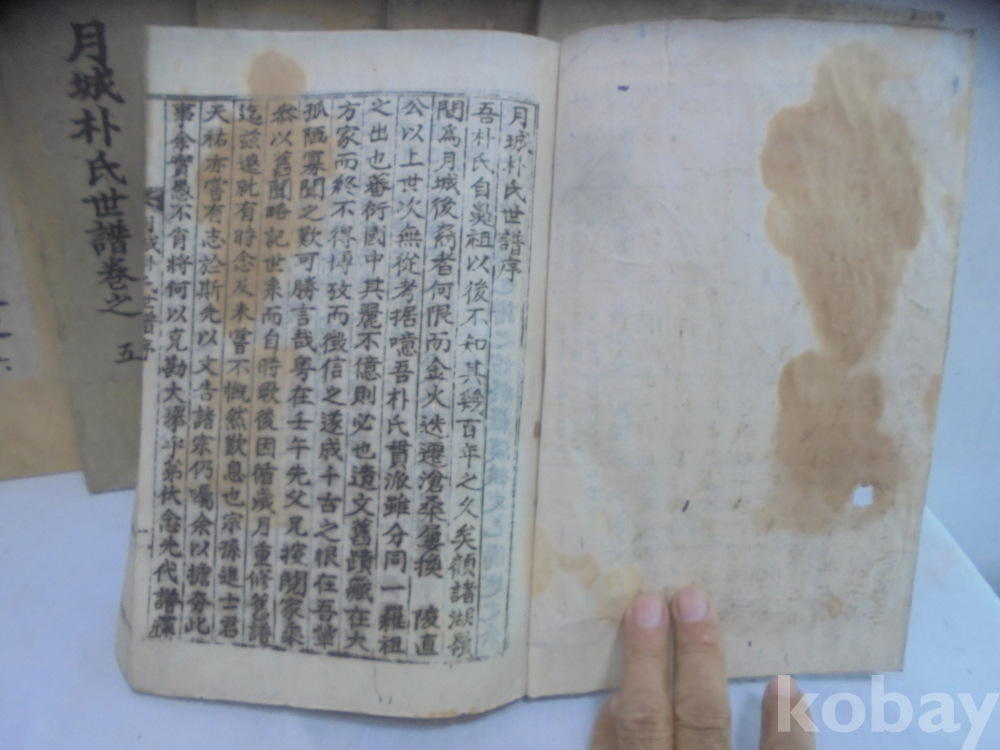 月城朴氏世譜序
吾朴氏自鼻祖以後不知其幾百年之久矣顧諸湖嶺
間爲月城後裔者何限而金火迭遷滄桑屢換 陵直
公以上世次無從考据噫吾朴氏貫派雖分同一羅祖
之出也蕃衍國中其麗不億則必也遺文舊蹟藏在大
方家而終不得博攷而徵信之遂成千古之恨在吾輩
孤陋寡聞之歎可勝言哉粤在壬午先父兄搜閱家乘
叅以舊聞略記世系而自時厥後因循歲月重修舊譜
迄玆遷就有時念及未嘗不慨然歎息也宗孫進士君
天祐亦嘗有志於斯先以文告諸宗仍囑余以擔夯此
事余實愚不肖將何以克勘大擧乎第伏念先代譜
月城朴氏世譜序
一
月城朴氏世譜卷之 五
kobay